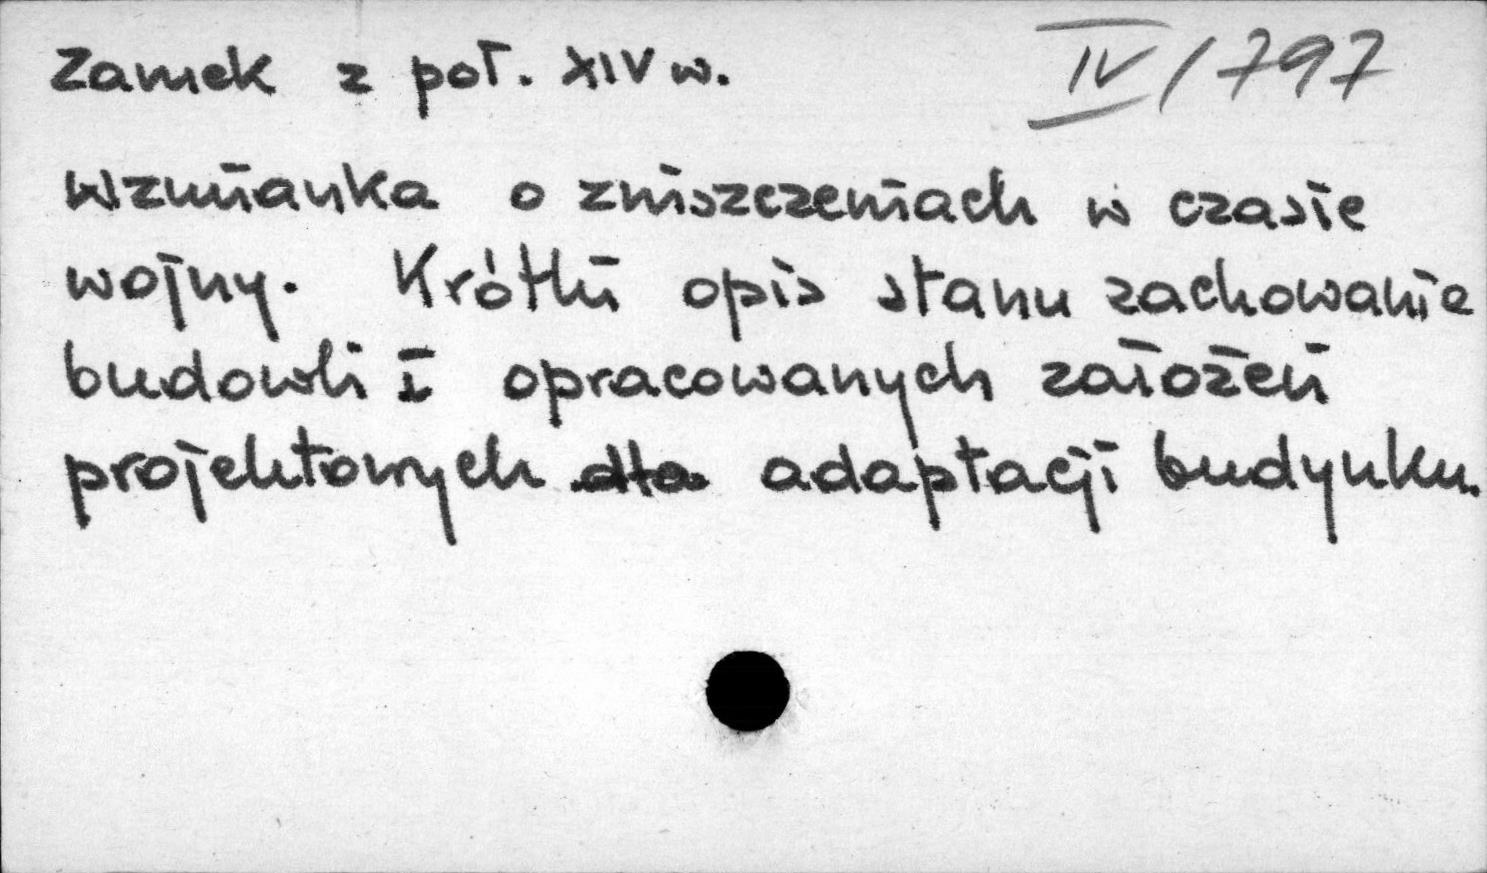 Zamek z poł. XIV w. IV/797
Wzmianka o zniszczeniach w czasie
wojny. Krótki opis stanu zachowanie
budowli i opracowanych założeń
projektowych dla adaptacji budynku.